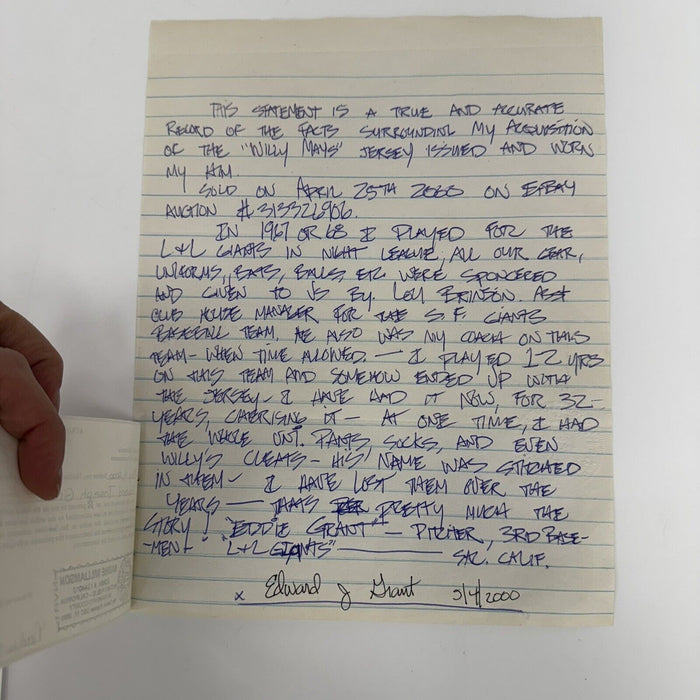 THIS STATEMENT IS A TRUE AND ACCURATE
RECORD OF THE FACTS SURROUNDING MY ACQUISITION
OF THE "WILLY MAYS" JERSEY ISSUED AND WORN
MY HIM.
SOLD ON APRIL 25TH 2000 ON E-BAY
AUCTION # 313326906.
IN 1967 OR 68 I PLAYED FOR THE
L+L GIANTS IN NIGHT LEAGUE, ALL OUR GEAR,
UNIFORMS, BATS, BALLS, ETC WERE SPONCERED
AND GIVEN TO US BY. LOU BRINSON. ASST
CLUB HOUSE MANAGER FOR THE S.F. GIANTS
BASEBALL TEAM. HE ALSO WAS MY COACH ON THIS
TEAM - WHEN TIME ALLOWED. — I PLAYED 12 YRS
ON THIS TEAM AND SOMEHOW ENDED UP WITH
THE JERSEY - I HAVE HAD IT NOW, FOR 32-
YEARS, CHERISING IT — AT ONE TIME, I HAD
THE WHOLE UNI. PANTS, SOCKS, AND EVEN
WILLY'S CLEATS - HIS NAME WAS STITCHED
IN THEM - I HAVE LOST THEM OVER THE
YEARS — THATS PRETTY MUCH THE
STORY! "EDDIE GRANT" - PITCHER, 3RD BASE-
-MEN - L+L GIANTS" — SAC. CALIF.
x Edward J Grant 5/4/2000
MARNIE WILLIAMSON